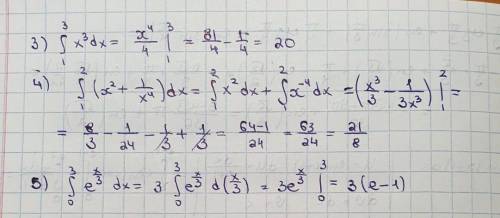 3) ∫₁³ x³dx = x⁴/4 |₁³ = 81/4 - 1/4 = 20
4) ∫₁² (x² + 1/x⁴)dx = ∫₁² x²dx + ∫₁² x⁻⁴dx = (x³/3 - 1/3x³) |₁² =
= 8/3 - 1/24 - 1/3 + 1/3 = 64-1/24 = 63/24 = 21/8
5) ∫₀³ e^(x/3) dx = 3 ∫₀³ e^(x/3) d(x/3) = 3e^(x/3) |₀³ = 3(e-1)